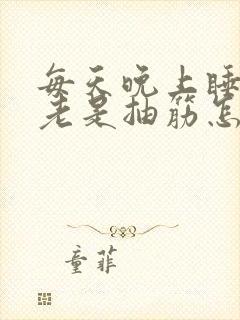 每天晚上睡
老是抽筋怎
童菲